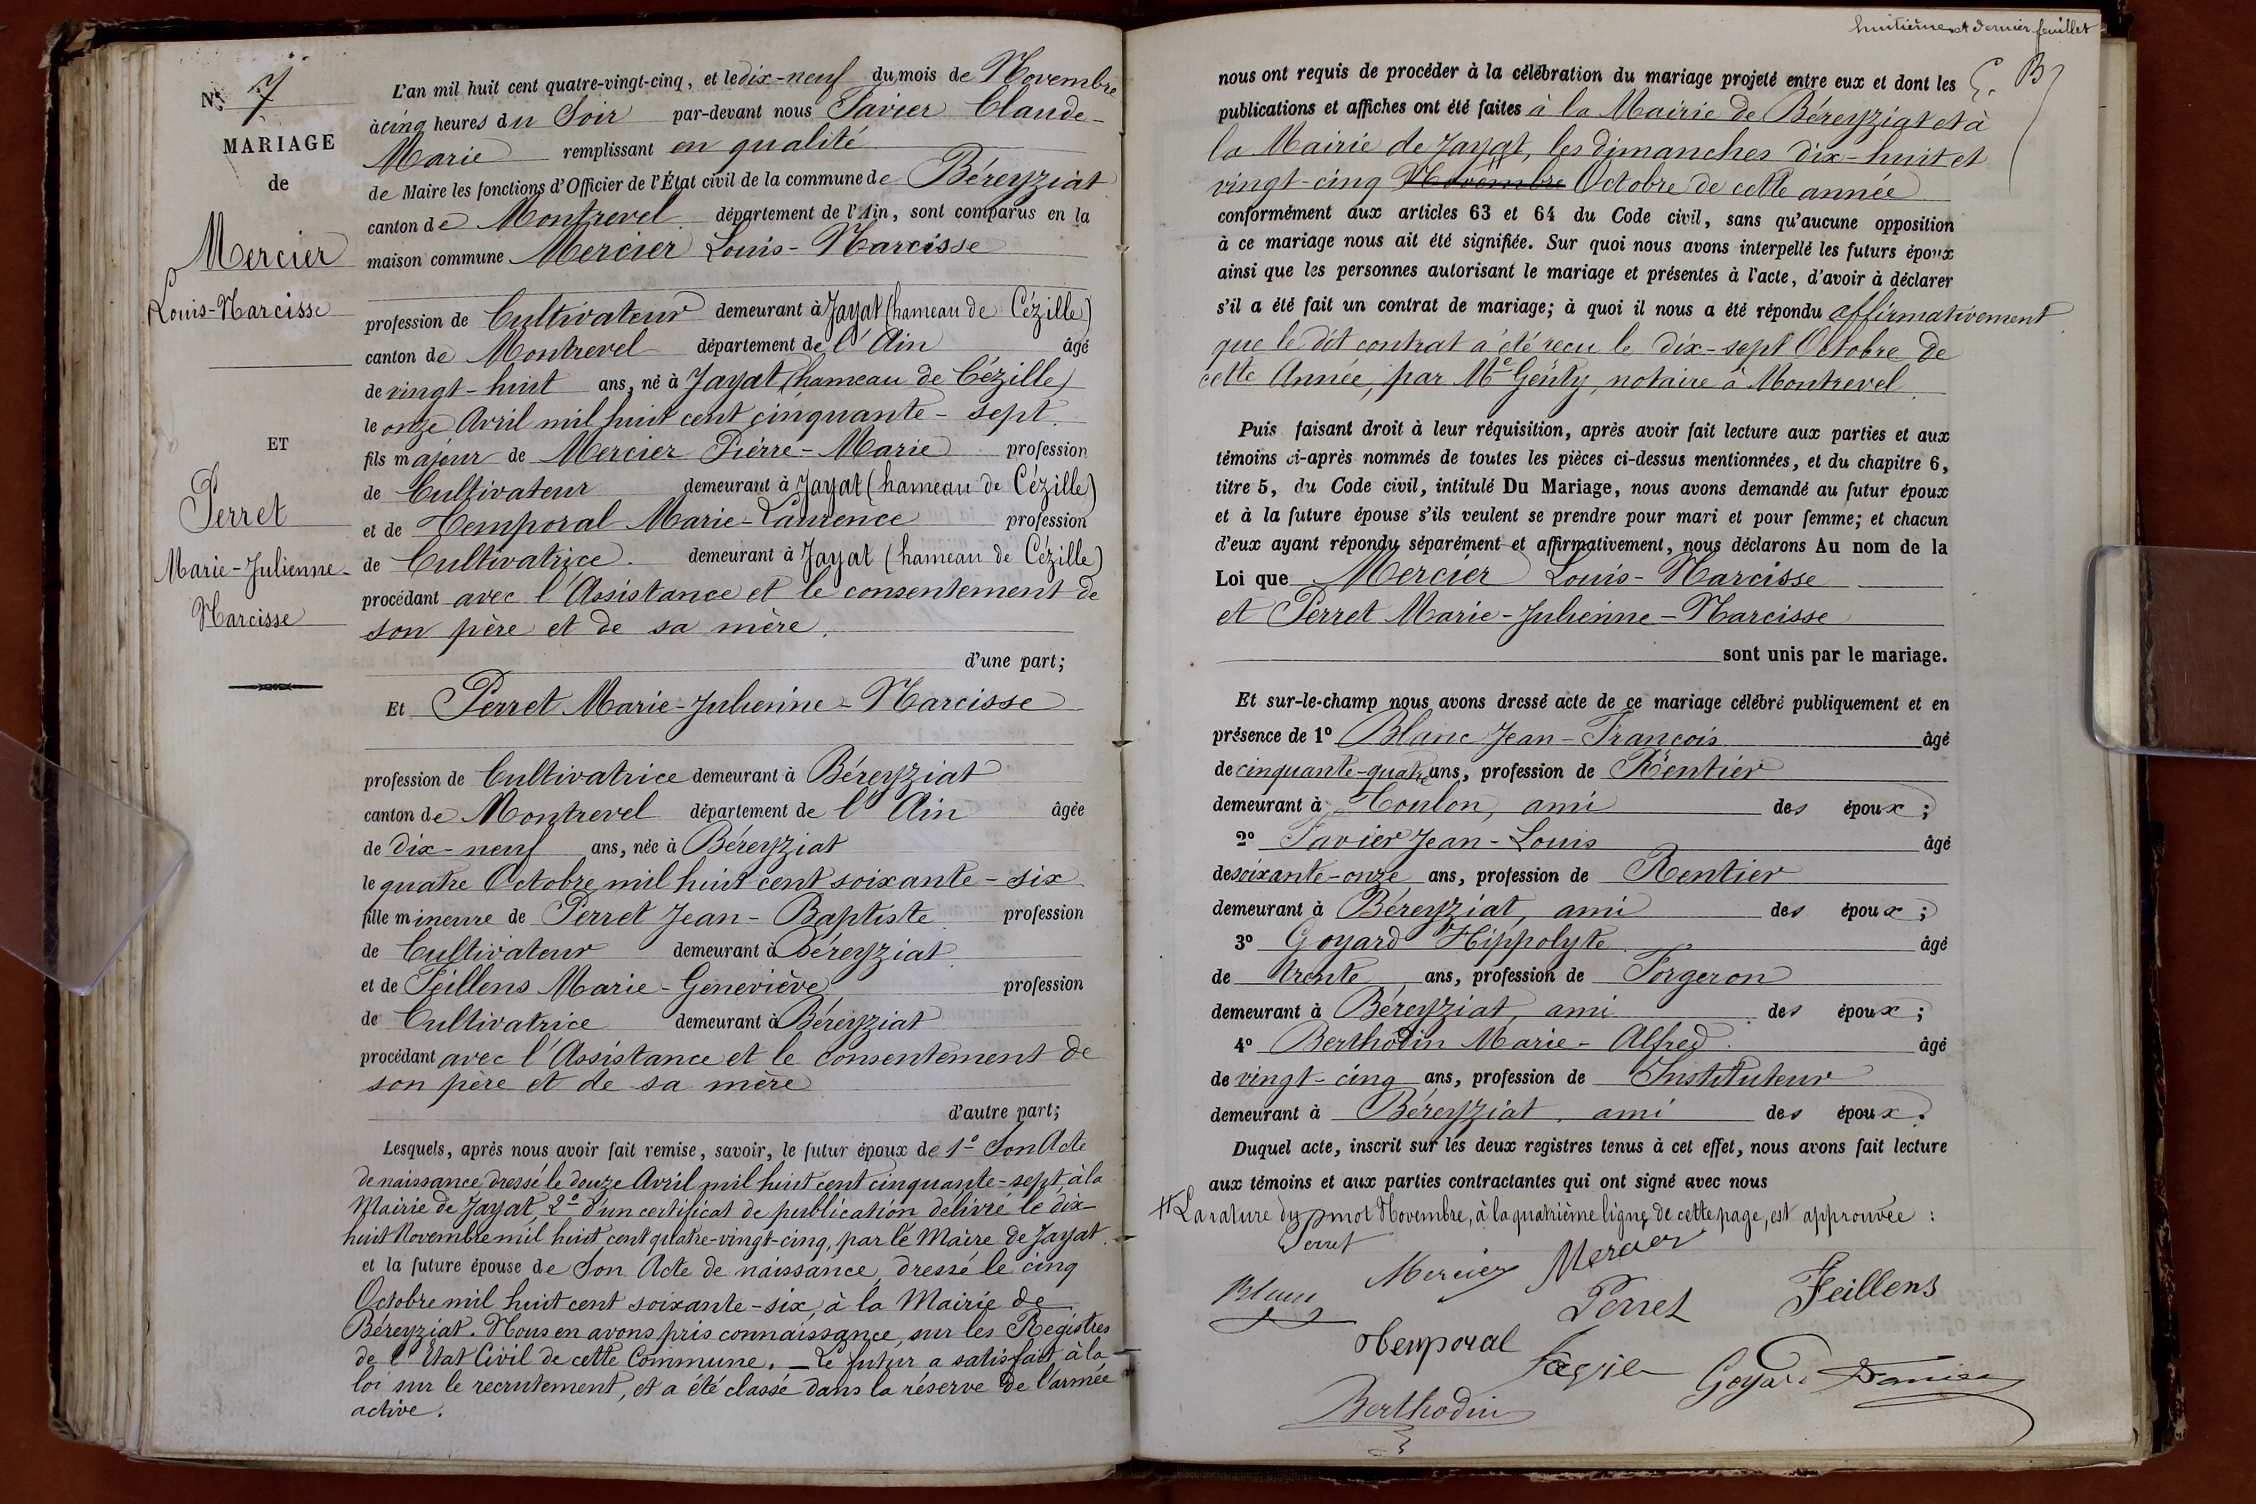 Nº 7
MARIAGE
de
Mercier
Louis-Narcisse
ET
Perret
Marie-Julienne-
Narcisse
L'an mil huit cent quatre-vingt-cinq, et le dix-neuf du mois de Novembre
à cinq heures du Soir par-devant nous Favier Claude-
Marie remplissant en qualité
de Maire les fonctions d'Officier de l'État civil de la commune de Béreyziat
canton de Montrevel département de l'Ain, sont comparus en la
maison commune Mercier Louis-Narcisse
profession de Cultivateur demeurant à Jayat (hameau de Cézille)
canton de Montrevel département de l'Ain âgé
de vingt-huit ans, né à Jayat (hameau de Cézille)
le onze Avril mil huit cent cinquante-sept.
fils majeur de Mercier Pierre-Marie profession
de Cultivateur demeurant à Jayat (hameau de Cézille)
et de Temporal Marie-Laurence profession
de Cultivatrice. demeurant à Jayat (hameau de Cézille)
procédant avec l'Assistance et le consentement de
son père et de sa mère.
d'une part;
Et Perret Marie-Julienne-Narcisse
profession de Cultivatrice demeurant à Béreyziat
canton de Montrevel département de l'Ain âgée
de dix-neuf ans, née à Béreyziat
le quatre Octobre mil huit cent soixante-six
fille mineure de Perret Jean-Baptiste profession
de Cultivateur demeurant à Béreyziat
et de Feillens Marie-Geneviève profession
de Cultivatrice demeurant à Béreyziat
procédant avec l'Assistance et le consentement de
son père et de sa mère
d'autre part;
Lesquels, après nous avoir fait remise, savoir, le futur époux de 1º Son Acte
de naissance dressé le douze Avril mil huit cent cinquante-sept, à la
Mairie de Jayat, 2º d'un certificat de publication délivré le dix-
huit Novembre mil huit cent quatre-vingt-cinq, par le Maire de Jayat.
et la future épouse de Son Acte de naissance, dressé le cinq
Octobre mil huit cent soixante-six, à la Mairie de
Béreyziat. Nous en avons pris connaissance, sur les Registres
de l'Etat Civil de cette Commune. — Le futur a satisfait à la
loi sur le recrutement, et a été classé dans la réserve de l'armée
active.
huitième et dernier feuillet
nous ont requis de procéder à la célébration du mariage projeté entre eux et dont les
publications et affiches ont été faites à la Mairie de Béreyziat et à
la Mairie de Jayat, les dimanches dix-huit et
vingt-cinq Novembre Octobre de cette année
conformément aux articles 63 et 64 du Code civil, sans qu'aucune opposition
à ce mariage nous ait été signifiée. Sur quoi nous avons interpellé les futurs époux
ainsi que les personnes autorisant le mariage et présentes à l'acte, d'avoir à déclarer
s'il a été fait un contrat de mariage; à quoi il nous a été répondu affirmativement
que le dit contrat a été reçu le dix-sept Octobre de
cette Année, par Me Genty, notaire à Montrevel.
Puis faisant droit à leur réquisition, après avoir fait lecture aux parties et aux
témoins ci-après nommés de toutes les pièces ci-dessus mentionnées, et du chapitre 6,
titre 5, du Code civil, intitulé Du Mariage, nous avons demandé au futur époux
et à la future épouse s'ils veulent se prendre pour mari et pour femme; et chacun
d'eux ayant répondu séparément et affirmativement, nous déclarons Au nom de la
Loi que Mercier Louis-Narcisse
et Perret Marie-Julienne-Narcisse
sont unis par le mariage.
Et sur-le-champ nous avons dressé acte de ce mariage célébré publiquement et en
présence de 1º Blanc Jean-François âgé
de cinquante-quatre ans, profession de Rentier
demeurant à Toulon, ami des époux;
2º Favier Jean-Louis âgé
de soixante-onze ans, profession de Rentier
demeurant à Béreyziat, ami des époux;
3º Goyard Hippolyte âgé
de trente ans, profession de Forgeron
demeurant à Béreyziat, ami des époux;
4º Berthodin Marie-Alfred. âgé
de vingt-cinq ans, profession de Instituteur
demeurant à Béreyziat, ami des époux.
Duquel acte, inscrit sur les deux registres tenus à cet effet, nous avons fait lecture
aux témoins et aux parties contractantes qui ont signé avec nous
La rature du mot Novembre, à la quatrième ligne de cette page, est approuvée :
Perret
Mercier Mercier
Blanc Perret Feillens
Temporal
Goyard
Berthodin